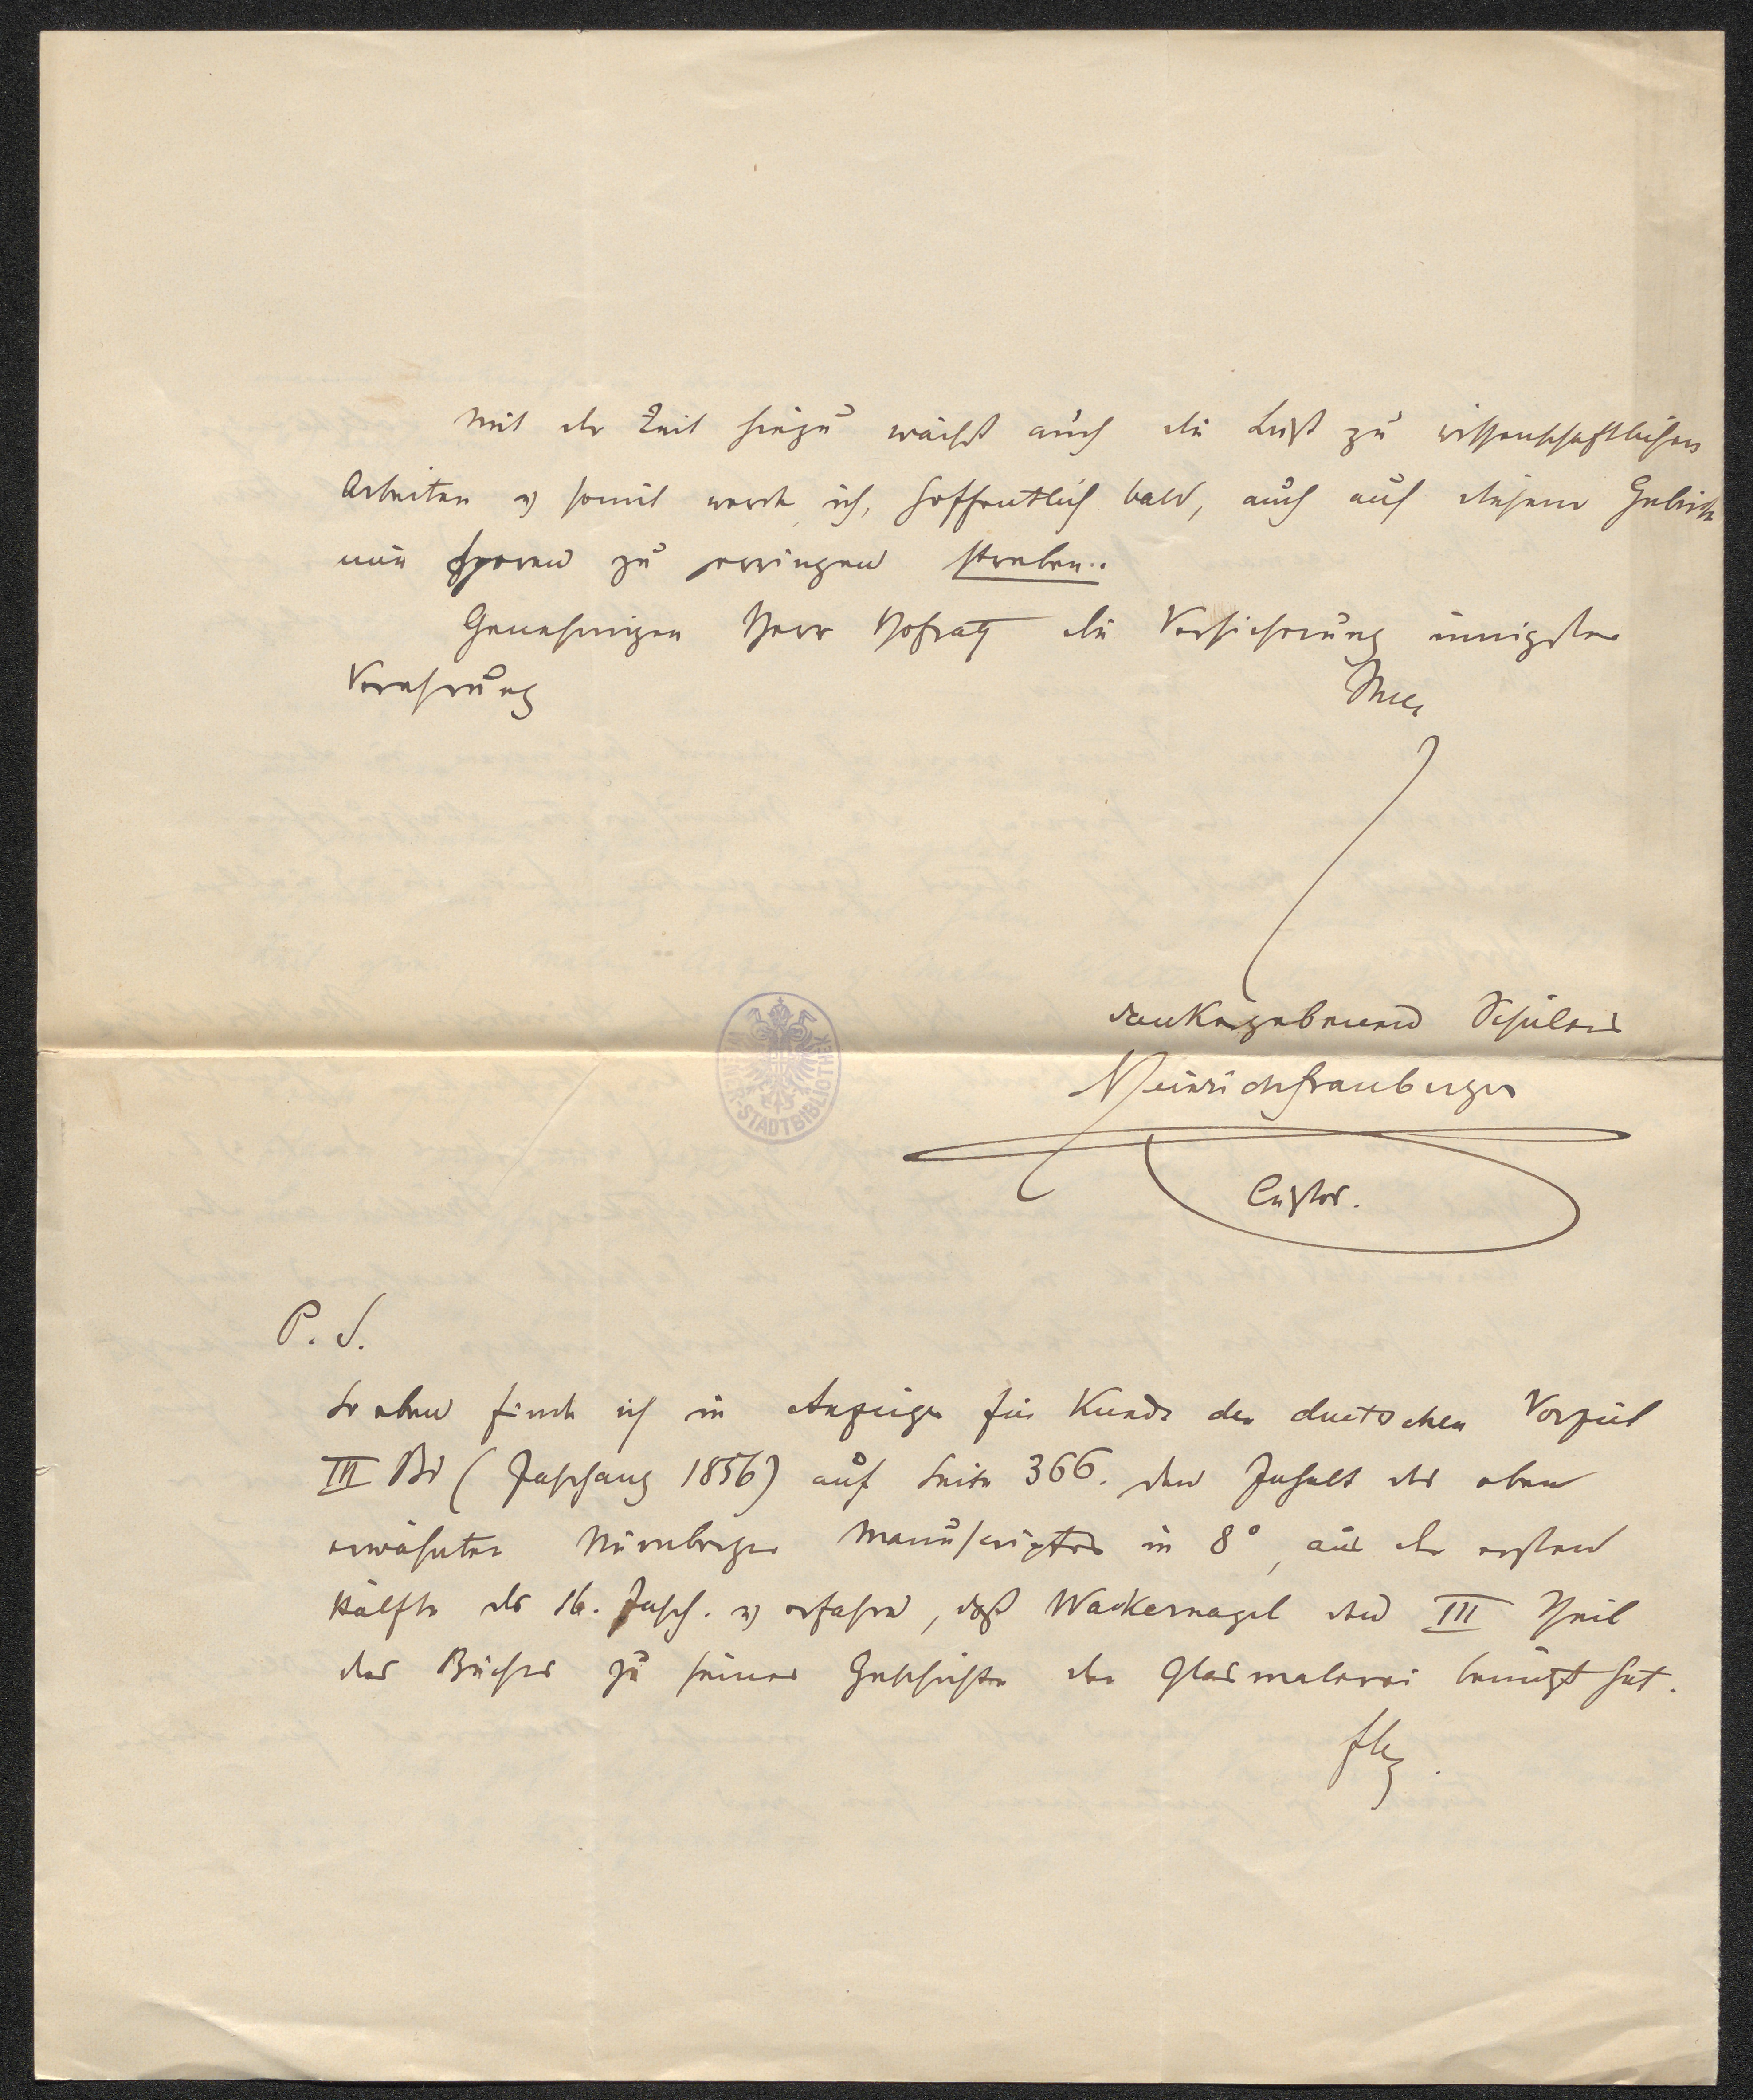 Mit der Zeit hiezu wächst auch die Lust zu wissenschaftlichen
Arbeiten u somit werde ich, hoffentlich bald, auch auf diesem Gebiete
mir Sporen zu erringen streben..
Genehmigen Herr Hofrath die Versicherung innigster
Verehrung
Ihres
dankergebenen Schülers
Heinrich Frauberger
Custos.
WIENER-STADTBIBLIOTHEK
P. S.
So eben finde ich in Anzeiger für Kunde der deutschen Vorzeit
III Bd (Jahrgang 1856) auf Seite 366. den Inhalt des oben
erwähnten Nürnberger Manuscriptes in 8°, aus der ersten
Hälfte des 16. Jahrh. u erfahre, daß Wackernagel den III Theil
des Buches zu seiner Geschichte der Glasmalerei benützt hat.